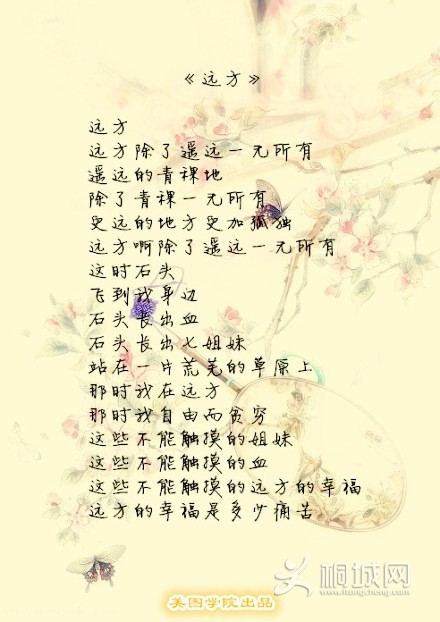 《远方》
远方
远方除了遥远一无所有
遥远的青稞地
除了青稞一无所有
更远的地方更加孤独
远方啊除了遥远一无所有
这时石头
飞到我身边
石头长出血
石头长出七姐妹
站在一片荒芜的草原上
那时我在远方
那时我自由而贫穷
这些不能触摸的姐妹
这些不能触摸的血
这些不能触摸的远方的幸福
远方的幸福是多少痛苦
美图学院出品
桐城网
itongcheng.com